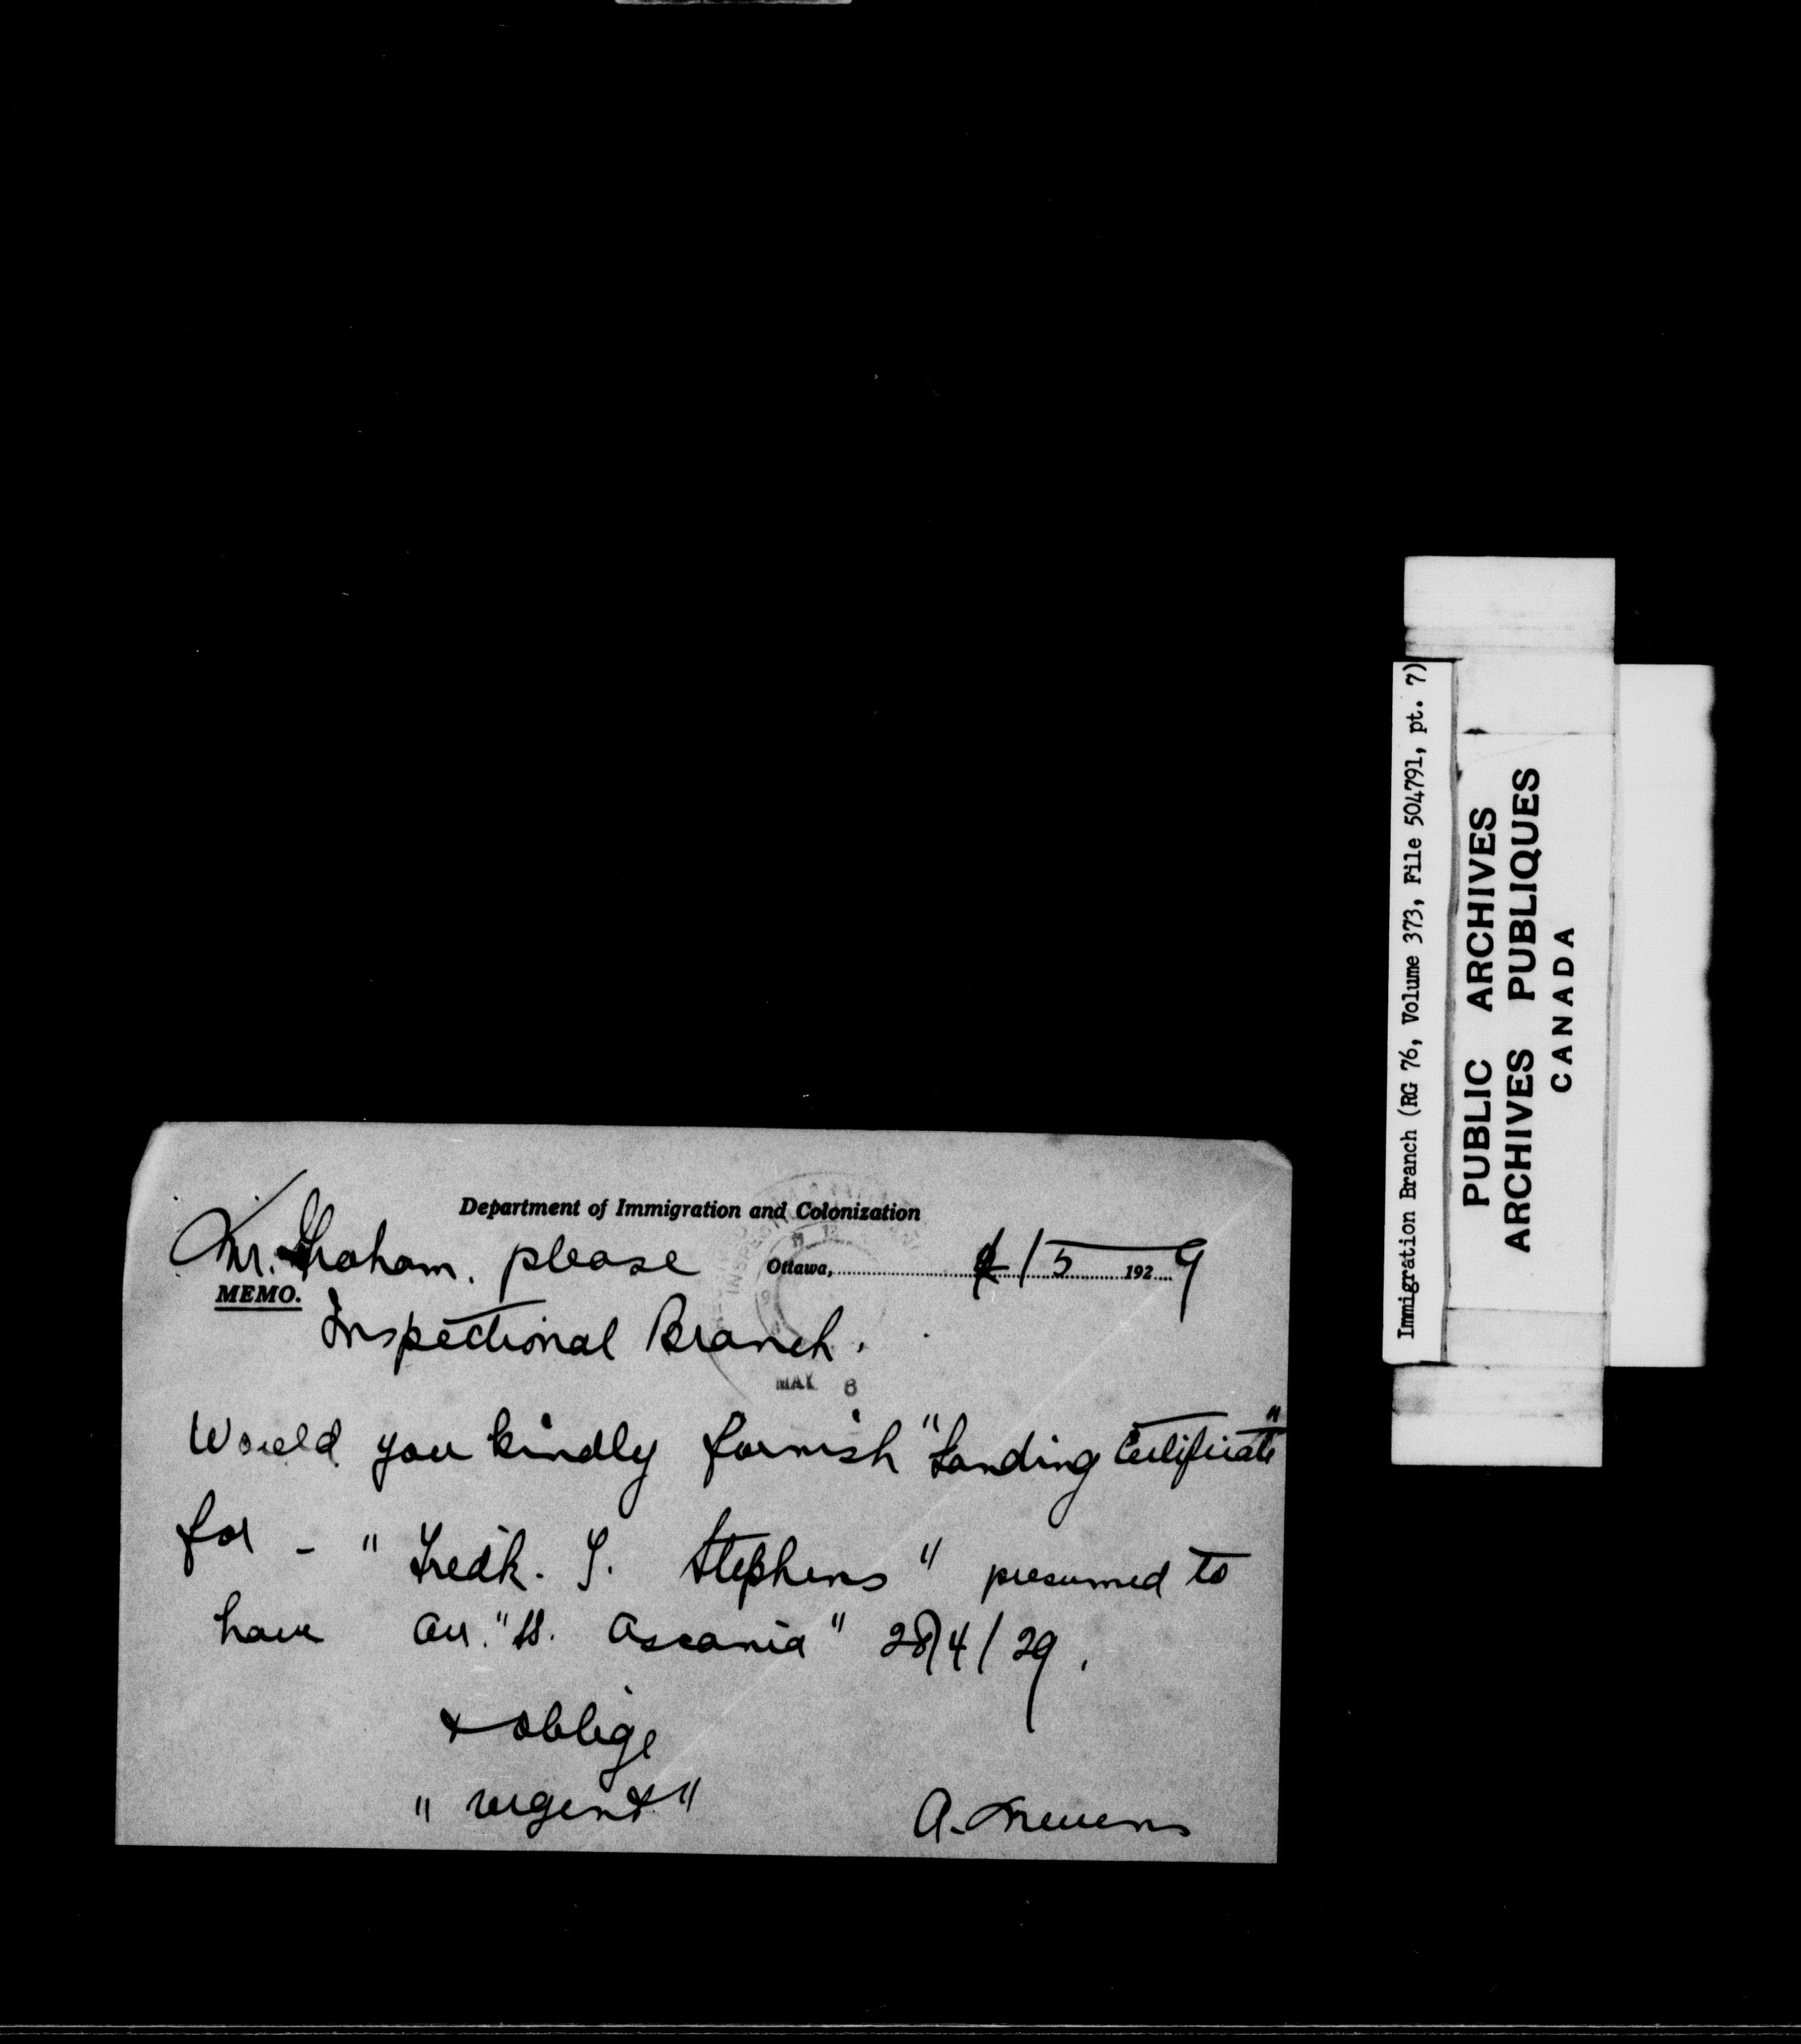 Department of Immigration and Colonization
Mr. Graham. please
Ottawa, /5 192 9
MEMO.
Inspectional Branch.
MAY 6
Would you kindly furnish "Landing Certificate"
for - "Fredk. J. Stephens" presumed to
have arr. "SS. Ascania" 28/4/29.
& oblige
"urgent"
A.
Immigration Branch (RG 76, Volume 373, File 504791, pt. 7)
PUBLIC ARCHIVES
ARCHIVES PUBLIQUES
CANADA